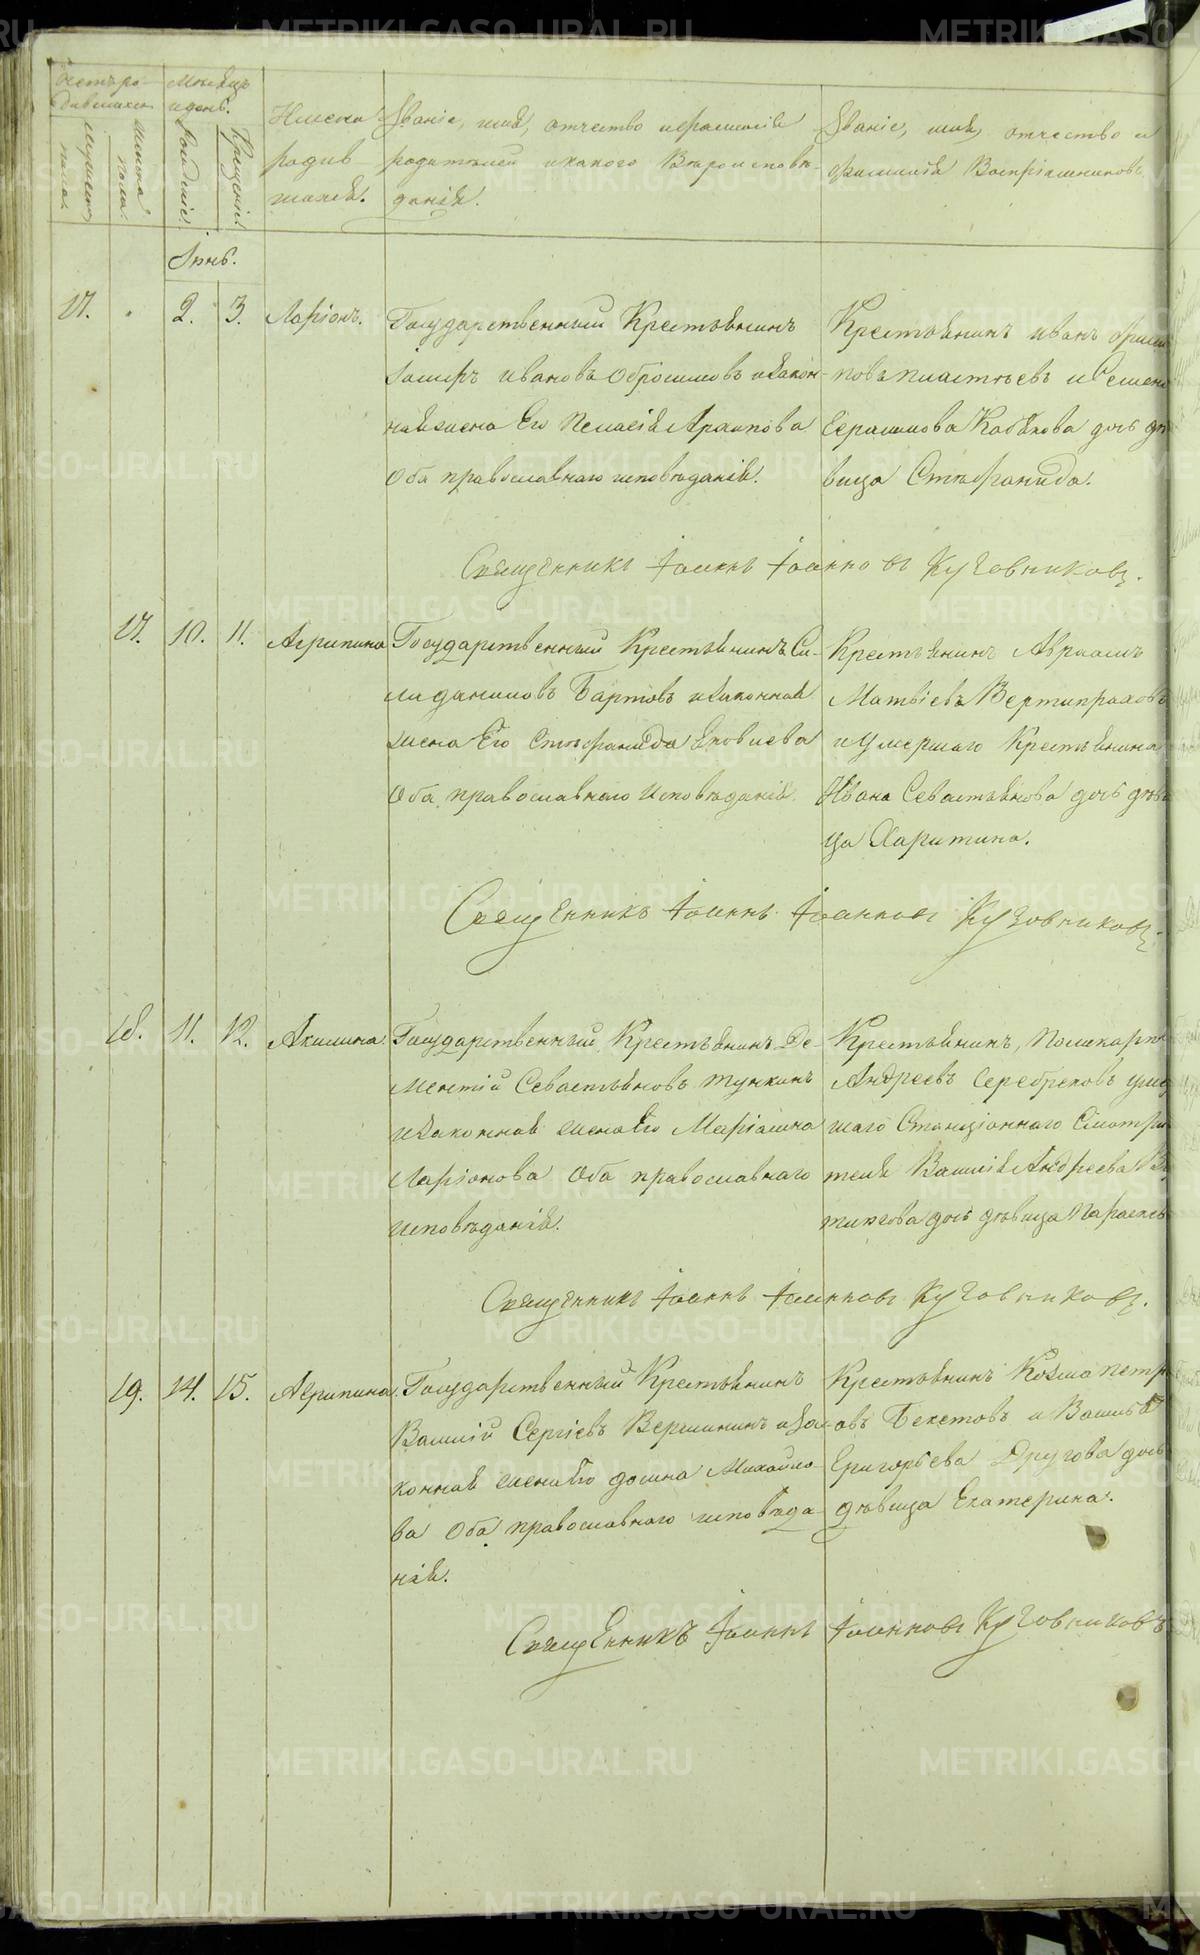 Счетъ ро-
дившихся
Мѣсяцъ
и день.
Мужеска
пола.
Женска
пола.
Рожденіе.
Крещеніе.
Имена
родив
шихся.
Званіе, имя, отчество и фамилія
родителей и какого Вѣроисповѣ-
данія.
Званіе, имя, отчество и
фамилія Воспріемниковъ
Іюнь.
17. 2. 3. Ларіонъ.
Государственный Крестьянинъ
Ивановъ Обросимовъ и закон-
ная жена Его Пелагія Архипова
Оба православнаго исповѣданія.
Крестьянинъ иванъ
и Семена
Герасимова Кабакова дочь дѣ
вица Стефанида.
Священникъ Іоаннъ Іоанновъ Кузовниковъ.
17. 10. 11. Агрипина
Государственный Крестьянинъ Си-
ла даниловъ Бартовъ и законная
жена Его Стефанида яковлева
Оба православнаго Исповѣданія.
Крестьянинъ Авраамъ
Матвіевъ Вертипраховъ
и Умершаго Крестьянина
Ивана Севастьянова дочь дѣви
ца Харитина.
Священникъ Іоаннъ Іоанновъ Кузовниковъ.
18. 11. 12. Акилина.
Государственный Крестьянинъ Де-
ментій Севастьяновъ Тункинъ
и законная жена Его Маріамна
Ларіонова Оба православнаго
исповѣданія.
Крестьянинъ, Поликарпъ
Андреевъ Серебряковъ умер
шаго Станціоннаго Смотри
теля Василія Андреева
дочь дѣвица Параскев
Священникъ Іоаннъ Іоанновъ Кузовниковъ.
19. 14. 15. Агрипина.
Государственный Крестьянинъ
Василій Сергіевъ Вершининъ и за-
конная жена Его домна Михайло-
ва Оба православнаго исповѣда-
нія.
Крестьянинъ Козма петр
овъ Бекетовъ и Василья
Григорьева Другова дочь
дѣвица Екатерина.
Священникъ Іоаннъ Іоанновъ Кузовниковъ
METRIKI.GASO-URAL.RU